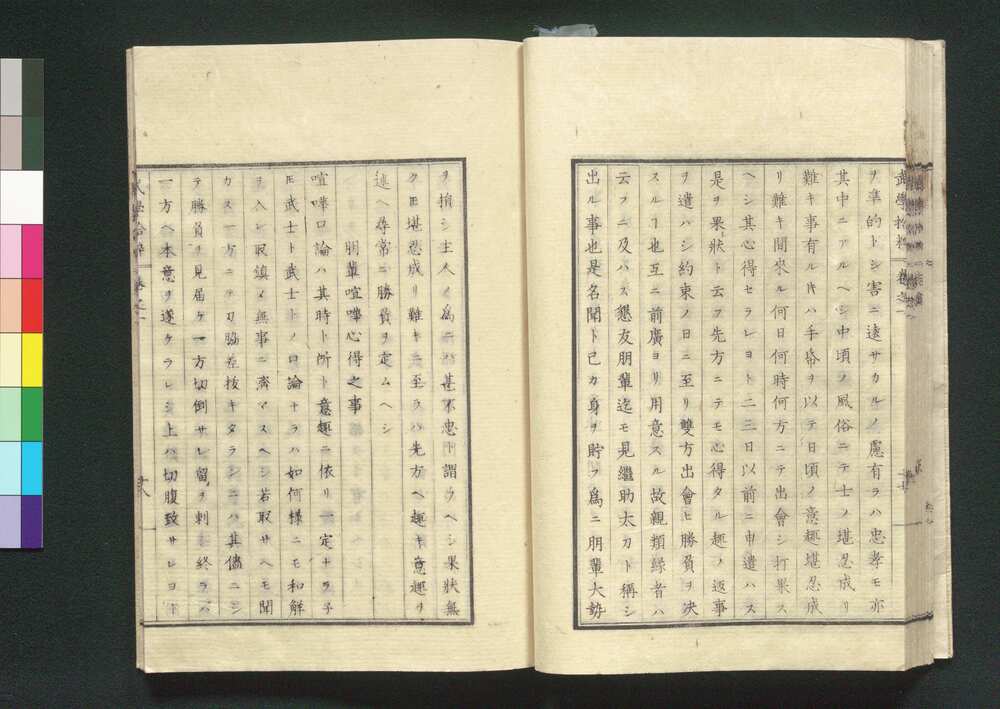 武學拾粹 卷之一
ヲ準的トシ害ニ遠サカルノ慮有ラハ忠孝モ亦
其中ニアルヘシ中頃ノ風俗ニテ士ノ堪忍成リ
難キ事有ル片ハ手帋ヲ以テ日頃ノ意趣堪忍成
リ難キ間來ル何日何時何方ニテ出會シ打果ス
ヘシ其心得セラレヨト二三日以前ニ申遣ハス
是ヲ果狀ト云フ先方ニテモ心得タル趣ノ返事
ヲ遣ハシ約東ノ日ニ至リ雙方出會ヒ勝負ヲ决
スルヿ也互ニ前廣ヨリ用意スル故親類縁者ハ
云フニ及ハス懇友朋輩迄モ見繼助太刀ト稱シ
出ル事也是名聞ト己カ身ヲ貯フ爲ニ朋輩大勢
ヲ損シ主人ノ爲ニハ甚不忠ト謂ウヘシ果狀無
ク㔺堪忍成リ難キニ至ラハ先方ヘ趣キ意趣ヲ
述ヘ尋常ニ勝負ヲ定ムヘシ
朋輩喧嘩心得之事
喧嘩口論ハ其時ト所ト意趣ニ依リ一定ナラ子
㔺武士ト武士トノ口論ナラハ如何樣ニモ和解
ヲ入レ取鎮メ無事ニ濟マスヘシ若取サヘモ聞
カス一方ニテ刄脇差抜キタランニハ其儘ニシ
テ勝負ヲ見届ケ一方切倒サレ留ヲ刺シ終ラハ
一方ヘ本意ヲ遂ケラレシ上ハ切腹致サレヨト